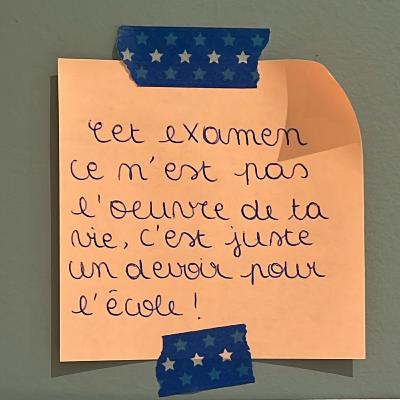 Cet examen
ce n'est pas
l'oeuvre de ta
vie, c'est juste
un devoir pour
l'école !